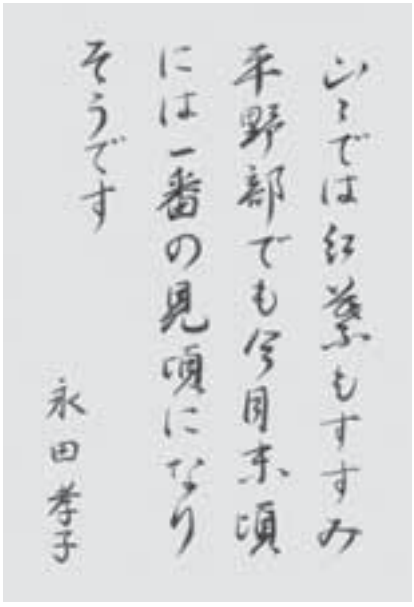 山々では紅葉もすすみ
平野部でも今月末頃
には一番の見頃になり
そうです
永田孝子